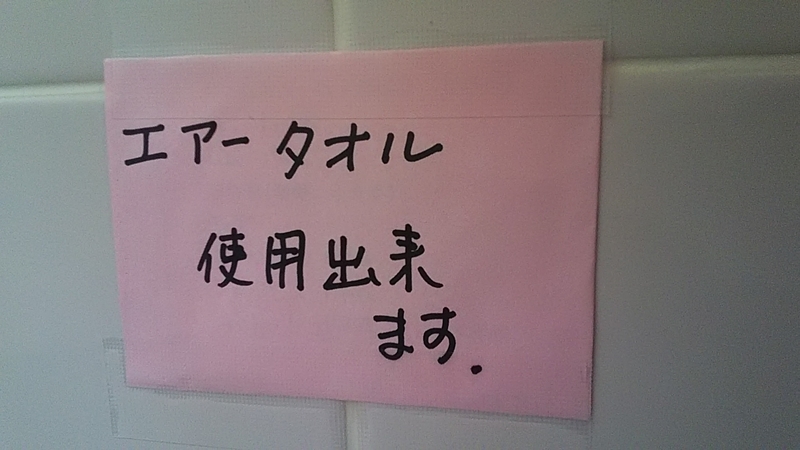 エアータオル
使用出来
ます.